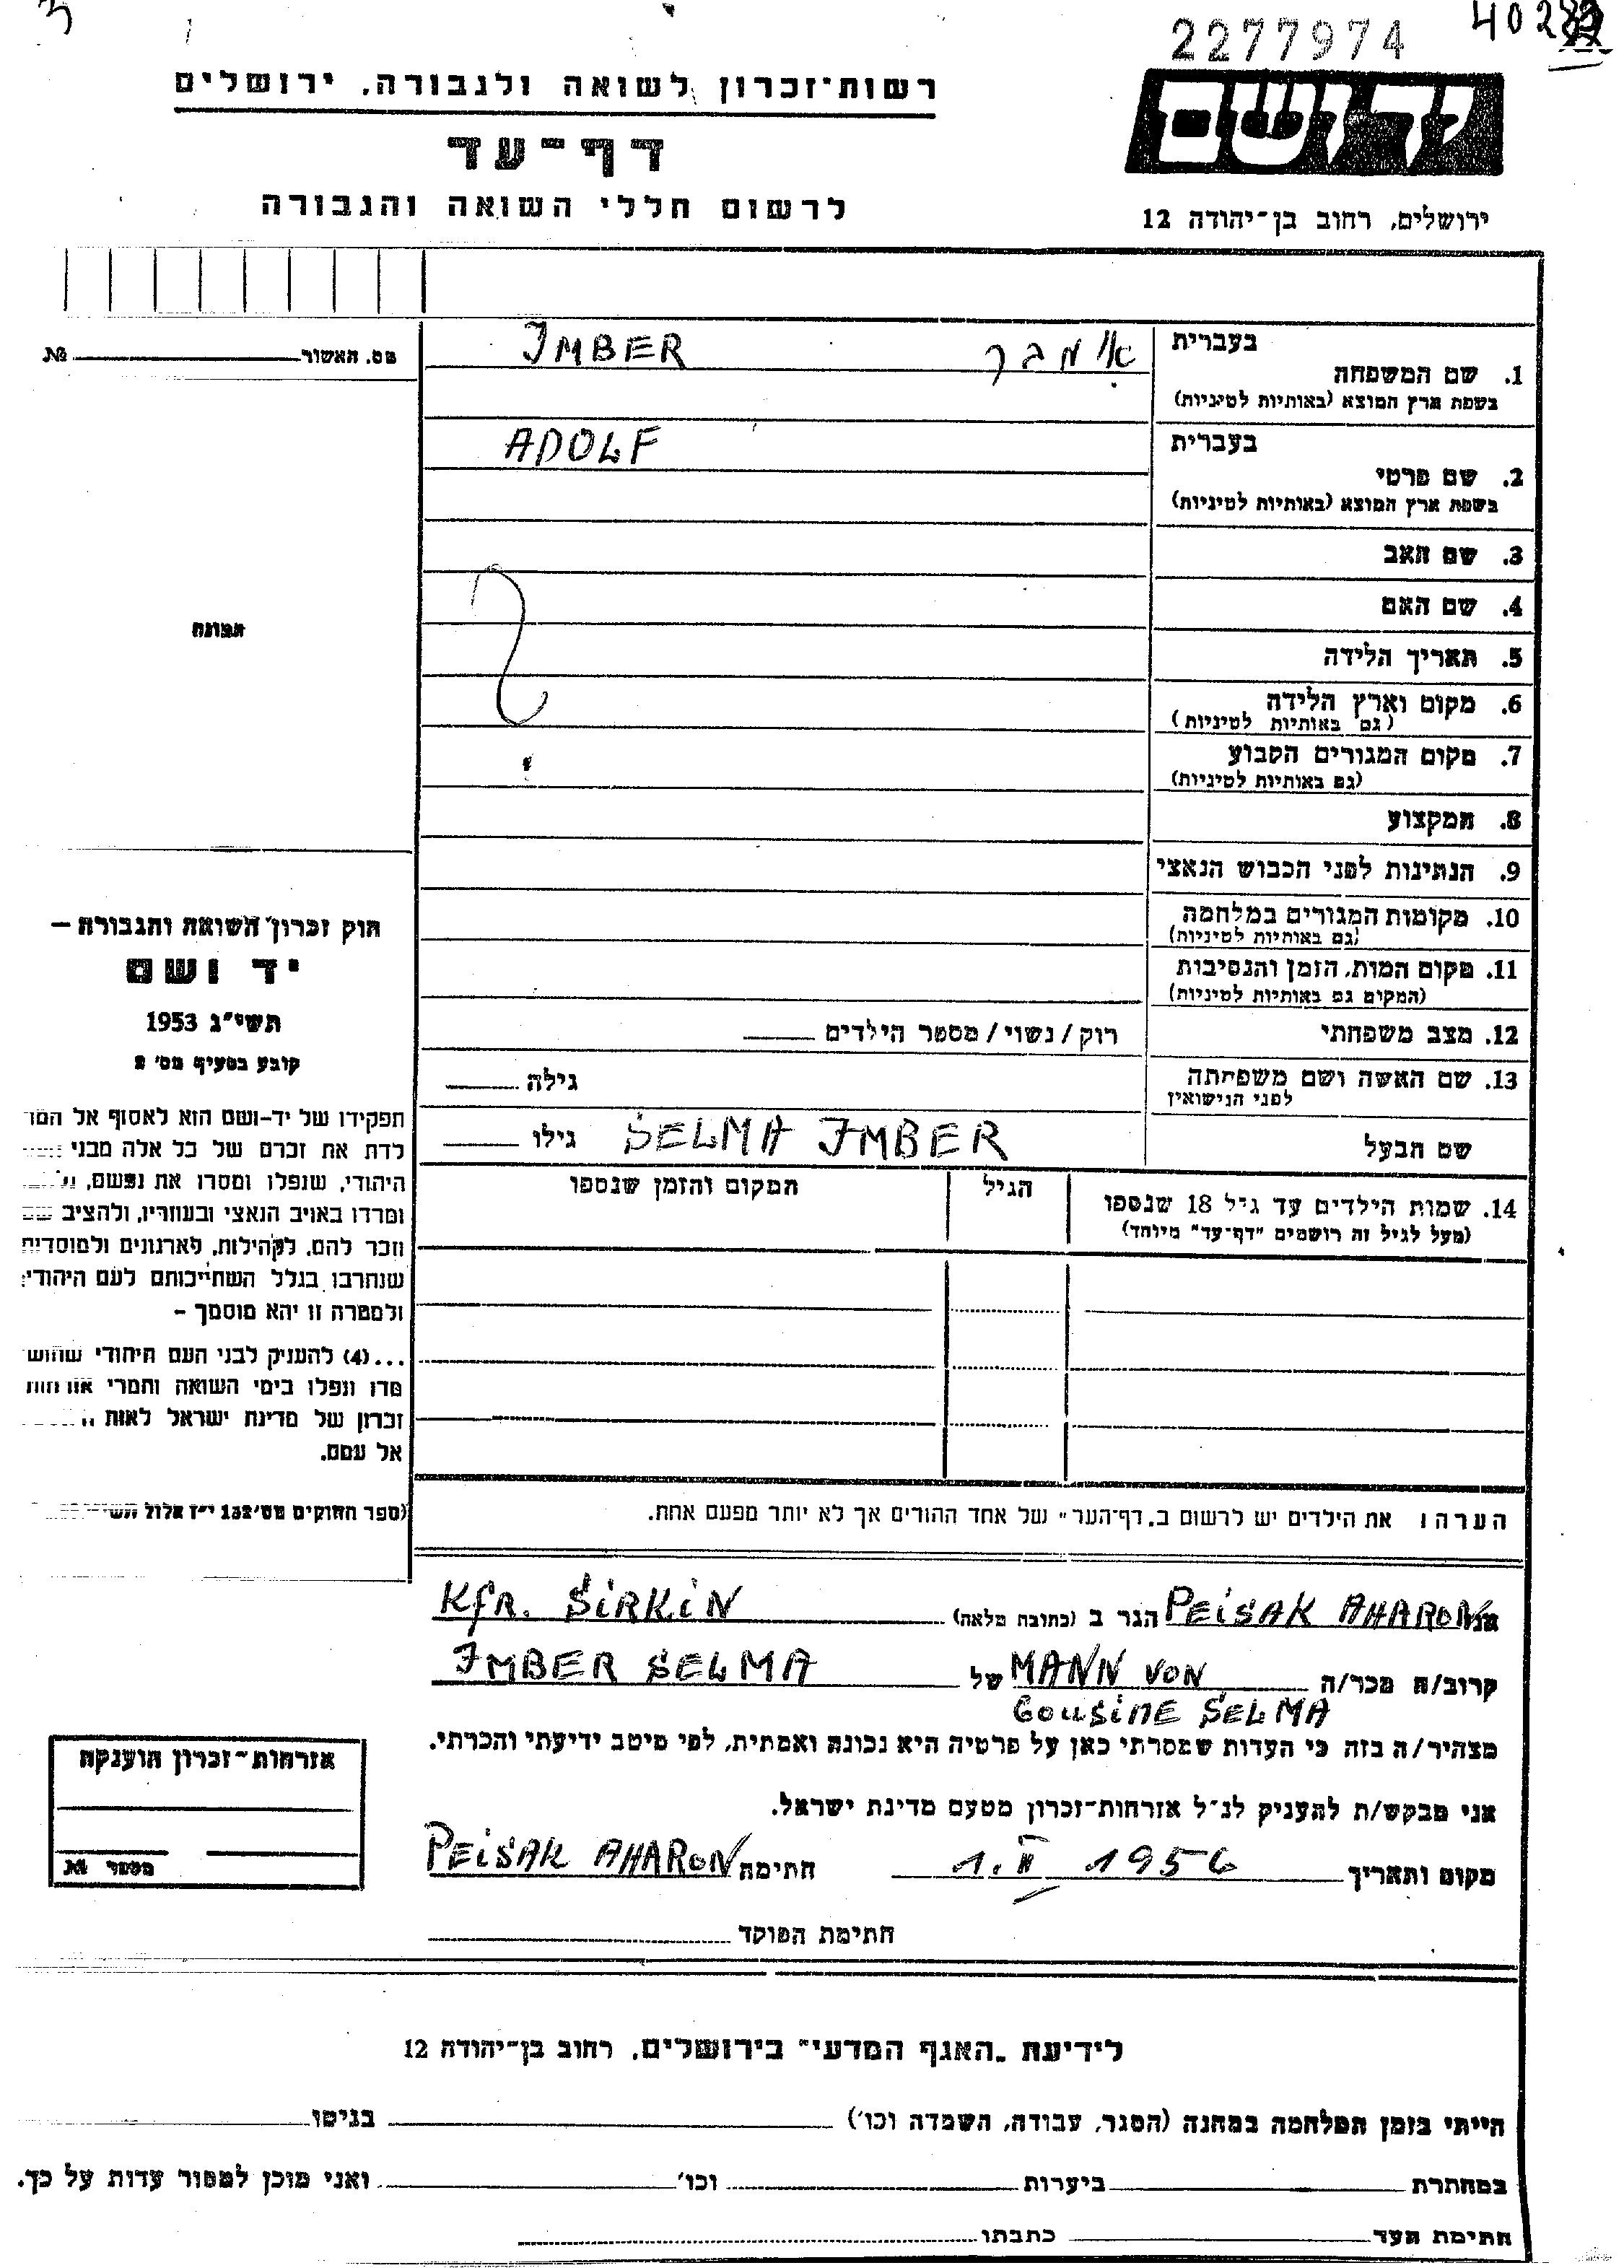 2277974
רשות־זכרון לשואה ולגבורה, ירושלים
ידושם
דף־עד
לרשום חללי השואה והגבורה
ירושלים, רחוב בן־יהודה 12
בעברית אימבר IMBER
1. שם המשפחה
בשפת ארץ המוצא (באותיות לטיניות)
מס. האשור №
בעברית ADOLF
2. שם פרטי
בשפת ארץ המוצא (באותיות לטיניות)
3. שם האב
4. שם האם
תמונה
5. תאריך הלידה
6. מקום וארץ הלידה
(גם באותיות לטיניות)
7. מקום המגורים הקבוע
(גם באותיות לטיניות)
8. המקצוע
9. הנתינות לפני הכבוש הנאצי
10. מקומות המגורים במלחמה
(גם באותיות לטיניות)
11. מקום המות, הזמן והנסיבות
(המקום גם באותיות לטיניות)
12. מצב משפחתי רווק/נשוי/מספר הילדים
13. שם האשה ושם משפחתה גילה
לפני הנישואין
שם הבעל SELMA IMBER גילו
14. שמות הילדים עד גיל 18 שנספו הגיל המקום והזמן שנספו
(מעל לגיל זה רושמים "דף־עד" מיוחד)
חוק זכרון השואה והגבורה —
יד ושם
תשי"ג 1953
קובע בסעיף מס' 2
תפקידו של יד-ושם הוא לאסוף אל המו
לדת את זכרם של כל אלה מבני
היהודי, שנפלו ומסרו את נפשם,
ומרדו באויב הנאצי ובעוזריו, ולהציב שם
וזכר להם, לקהילות, לארגונים ולמוסדות
שנחרבו בגלל השתייכותם לעם היהודי,
ולמטרה זו יהא מוסמך —
...(4) להעניק לבני העם היהודי שהוש
מדו ונפלו בימי השואה והמרי אזרחות
זכרון של מדינת ישראל לאות
אל עמם.
(ספר החוקים מס' 132 י"ז אלול
הערה: את הילדים יש לרשום ב"דף־העד" של אחד ההורים אך לא יותר מפעם אחת.
אני PEiSAK AHARON הגר ב (כתובת מלאה) KfR. SiRKiN
קרוב/ה מכר/ה MANN VON של IMBER SELMA
COUSINE SELMA
מצהיר/ה בזה כי העדות שמסרתי כאן על פרטיה היא נכונה ואמתית, לפי מיטב ידיעתי והכרתי.
אני מבקש/ת להעניק לנ"ל אזרחות־זכרון מטעם מדינת ישראל.
מקום ותאריך 1. II 1956 חתימת PEiSAK AHARON
חתימת הפוקד
אזרחות־זכרון הוענקה
מספר №
לידיעת "האגף המדעי" בירושלים, רחוב בן־יהודה 12
הייתי בזמן המלחמה במחנה (הסגר, עבודה, השמדה וכו') בגיטו
במחתרת ביערות וכו' ואני מוכן למסור עדות על כך.
חתימת העד כתבתו